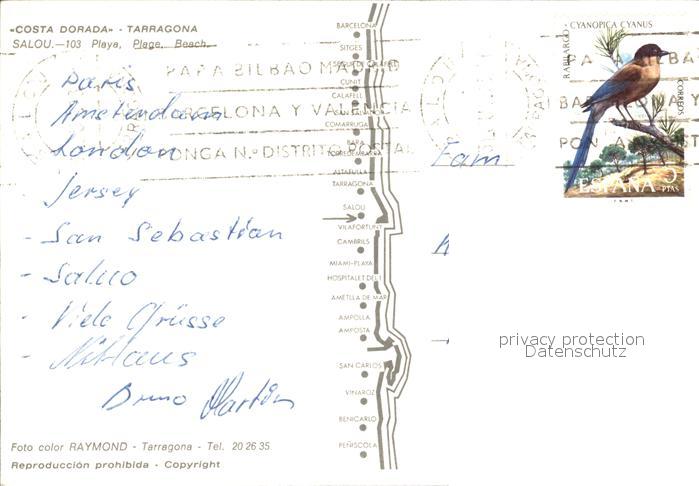 «COSTA DORADA» - TARRAGONA
SALOU.—103 Playa, Plage, Beach.
Paris
Amsterdam
London
Jersey
- San Sebastian
- Saluo
- Viele Grüsse
- Niklaus
Bruno Martin
Foto color RAYMOND - Tarragona - Tel. 20 26 35
Reproducción prohibida - Copyright
BARCELONA
SITGES
CUNIT
CALAFELL
COMARRUGA
TORREDEMBARRA
ALTAFULLA
TARRAGONA
SALOU
VILAFORTUNY
CAMBRILS
MIAMI-PLAYA
HOSPITALET DEL I.
AMETLLA DE MAR
AMPOLLA
AMPOSTA
SAN CARLOS
VINAROZ
BENICARLO
PEÑISCOLA
PARA BILBAO MADRID
BARCELONA Y VALENCIA
PONGA N.º DISTRITO POSTAL
Fam
CYANOPICA CYANUS
RABILARGO
CORREOS
ESPAÑA 5
PTAS
privacy protection
Datenschutz